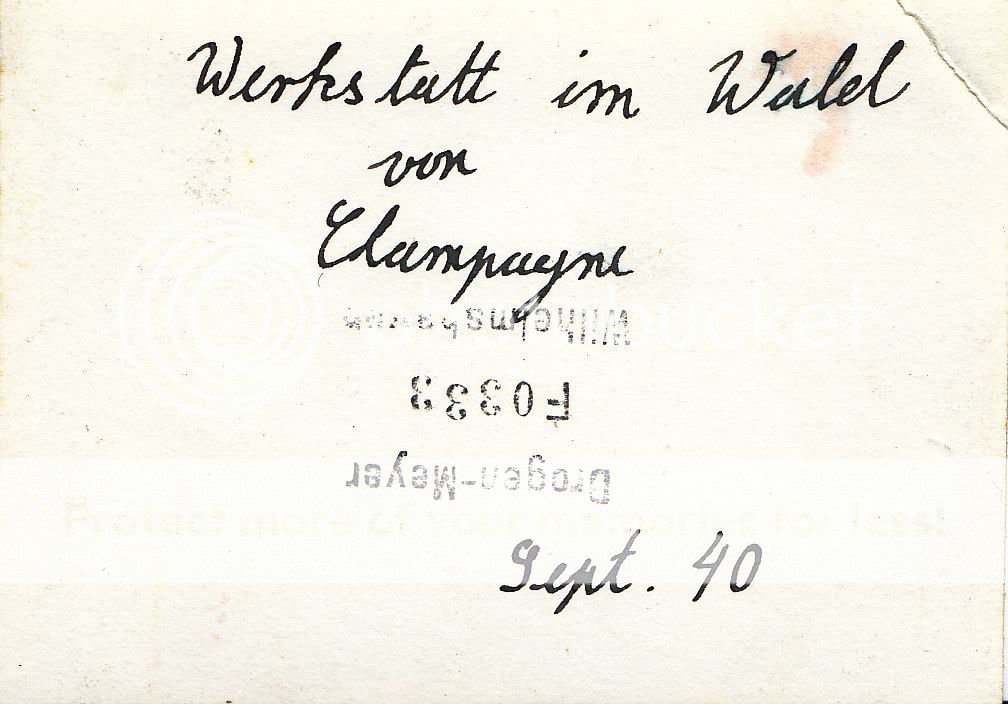 Werkstatt im Wald
von
Champagne
Drogen-Meyer
F0333
Wilhelmshaven
Protect more of your memories for less!
Sept. 40